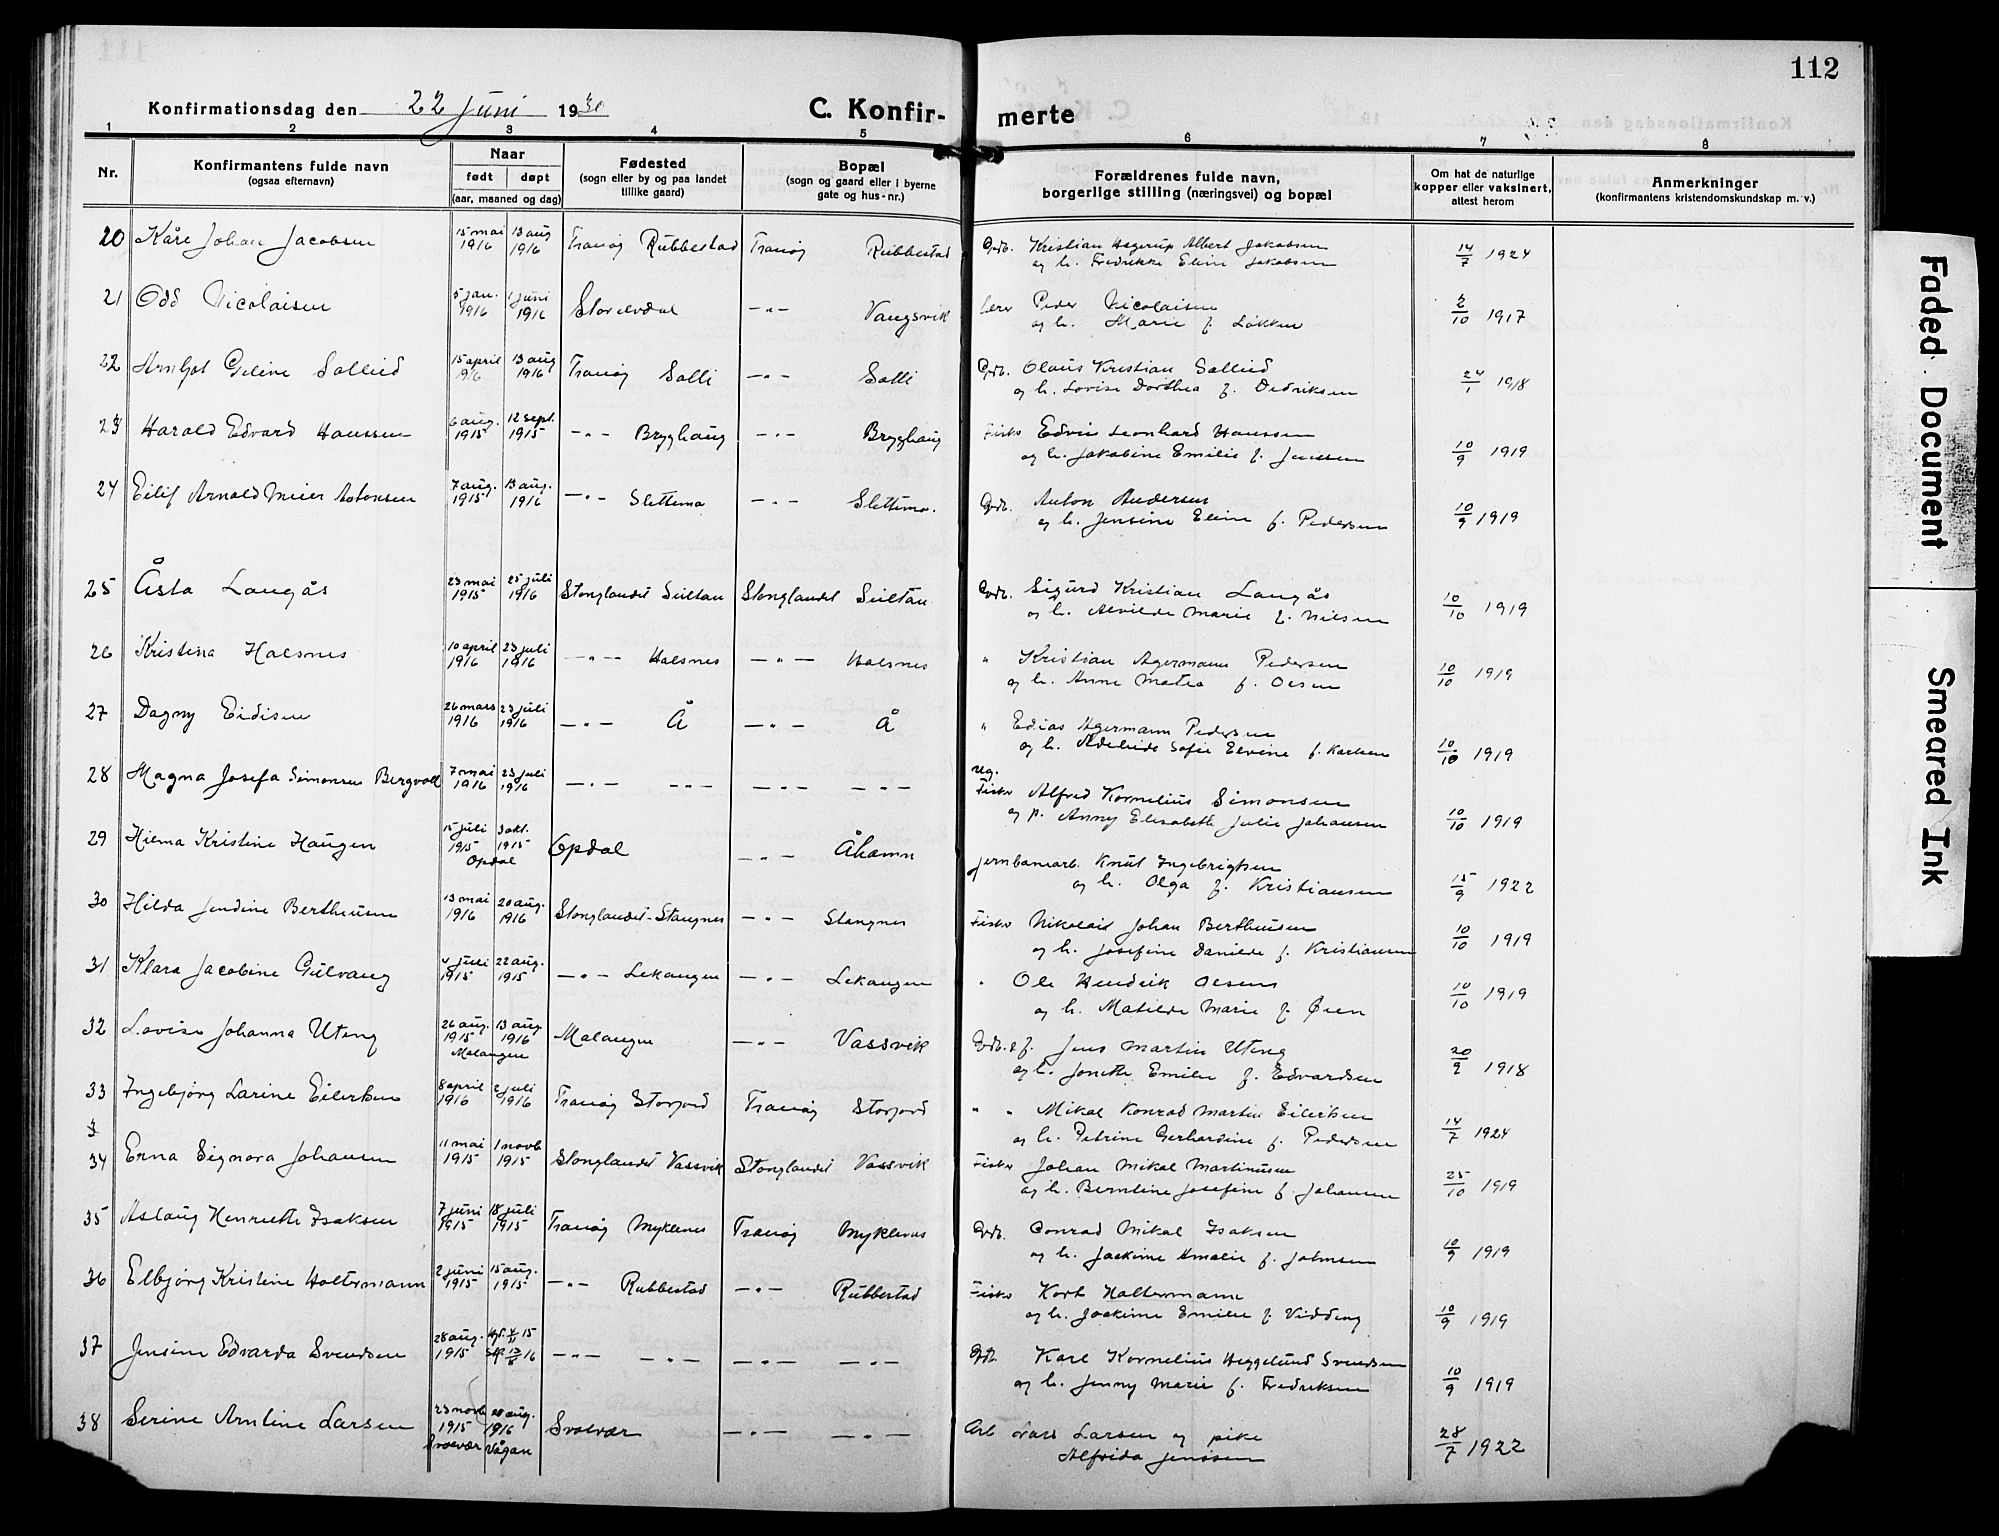 112
Konfirmationsdag den 22 juni 1930
C. Konfir- merte
1 2 3 4 5 6 7 8
Nr.
Konfirmantens fulde navn
(ogsaa efternavn)
Naar
født døpt
(aar, maaned og dag)
Fødested
(sogn eller by og paa landet
tillike gaard)
Bopæl
(sogn og gaard eller i byerne
gate og hus-nr.)
Forældrenes fulde navn,
borgerlige stilling (næringsvei) og bopæl
Om hat de naturlige
kopper eller vaksinert,
attest herom
Anmerkninger
(konfirmantens kristendomskundskap m. v.)
20 Kåre Johan Jacobsen 15 mai 1916 13 aug 1916 Tranøy Rubbestad Tranøy Rubbestad Grdb. Kristian Hagerup Albert Jakobsen
og h. Fredrikke Eline Jakobsen 14/7 1924
21 Odd Nicolaisen 5 jan. 1916 1 juni 1916 Storelvdal —"— Vangsvik Peder Nicolaisen
og h. Marie f. Løkken 2/10 1917
22 Geline Sollied 15 april 1916 13 aug 1916 Tranøy Solli —"— Solli Grdb. Olaus Kristian Sollied
og h. Lovise Dorthea f. Dedriksen 24/1 1918
23 Harald Edvard Hanssen 6 aug. 1915 12 sept. 1915 —"— Brygghaug —"— Brygghaug Fisker Edvin Leonhard Hanssen
og h. Jakobine Emilie f. Jenssen 10/9 1919
24 Eilif Arnold Meier Antonsen 7 aug. 1915 13 aug. 1916 —"— Slettemo —"— Slettemo. Grdb. Anton Andersen
og h. Jensine Eline f. Pedersen 10/9 1919
25 Åsta Langås 23 mai 1915 25 juli 1916 Stonglandet Sultan Stonglandet Sultan Grdb. Sigurd Kristian Langås
og h. Alvilde Marie f. Nilsen 10/10 1919
26 Kristina Halsnes 10 april 1916 23 juli 1916 —"— Halsnes —"— Halsnes " Kristian Agermann Pedersen
og h. Anne Matea f. Olsen 10/10 1919
27 Dagny Eidisen 26 mars 1916 23 juli 1916 —"— Å —"— Å " Edias Agermann Pedersen
og h. Adeleide Sofie Elvine f. Karlsen 10/10 1919
28 Magna Josefa Simonsen Bergvoll 7 mai 1916 23 juli 1916 —"— —"— —"— —"— Ug.
Fisker Alfred Kornelius Simonsen
og p. Anny Elisabeth Julie Johansen 10/10 1919
29 Hilma Kristine Haugen 15 juli 1915 3 okt. 1915 Opdal Opdal —"— Åhamn Jernbanearb. Knut Ingebrigtsen
og h. Olga f. Kristiansen 15/9 1922
30 Hilda Jendine Bertheusen 13 mai 1916 20 aug. 1916 Stonglandet-Stangnes —"— Stangnes Fisker Nikolai Johan Bertheusen
og h. Josefine Danilde f. Kristiansen 10/10 1919
31 Klara Jacobine Gulvang 4 juli 1915 22 aug. 1915 —"— Lekangen —"— Lekangen " Ole Hendrik Olsen
og h. Matilde Marie f. Øien 10/10 1919
32 Lovise Johanna Uteng 26 aug. 1915 13 aug. 1916 Malangen Malangen —"— Vassvik Grdb. & f. Jens Martin Uteng
og h. Jonette Emilie f. Edvardsen 20/9 1918
33 Ingebjørg Larine Eilertsen 8 april 1916 2 juli 1916 Tranøy Storjord Tranøy Storjord " " Mikal Konrad Martin Eilertsen
og h. Petrine Gerhardine f. Pedersen 14/7 1924
34 Erna Signora Johansen 11 mai 1915 1 novb 1915 Stonglandet Vassvik Stonglandet Vassvik Fisker Johan Mikal Martinusen
og h. Berntine Josefine f. Johansen 25/10 1919
35 Aslaug Henriette Isaksen 7 juni 1915 18 juli 1915 Tranøy Myklenes Tranøy Myklenes Grdb. Conrad Mikal Isaksen
og h. Jackine Amalie f. Johnsen 10/9 1919
36 Elbjørg Kristine Holtermann 2 juni 1915 15 aug. 1915 —"— Rubbestad —"— Rubbestad Fisker Kort Holtermann
og h. Joakime Emilie f. Vidding 10/9 1919
37 Jensine Edvarda Svendsen 28 aug. 1915 4/11 15 13/8 16 —"— —"— —"— —"— Karl Kornelius Heggelund Svendsen
og h. Jenny Marie f. Fredriksen 10/9 1919
38 Serine Arntine Larsen 23 novb 1915 Svolvær 20 aug. 1916 Vågan Svolvær —"— —"— Arb Lars Larsen og pike
Alfrida Jenssen 28/7 1922
Faded Document
Smeared Ink